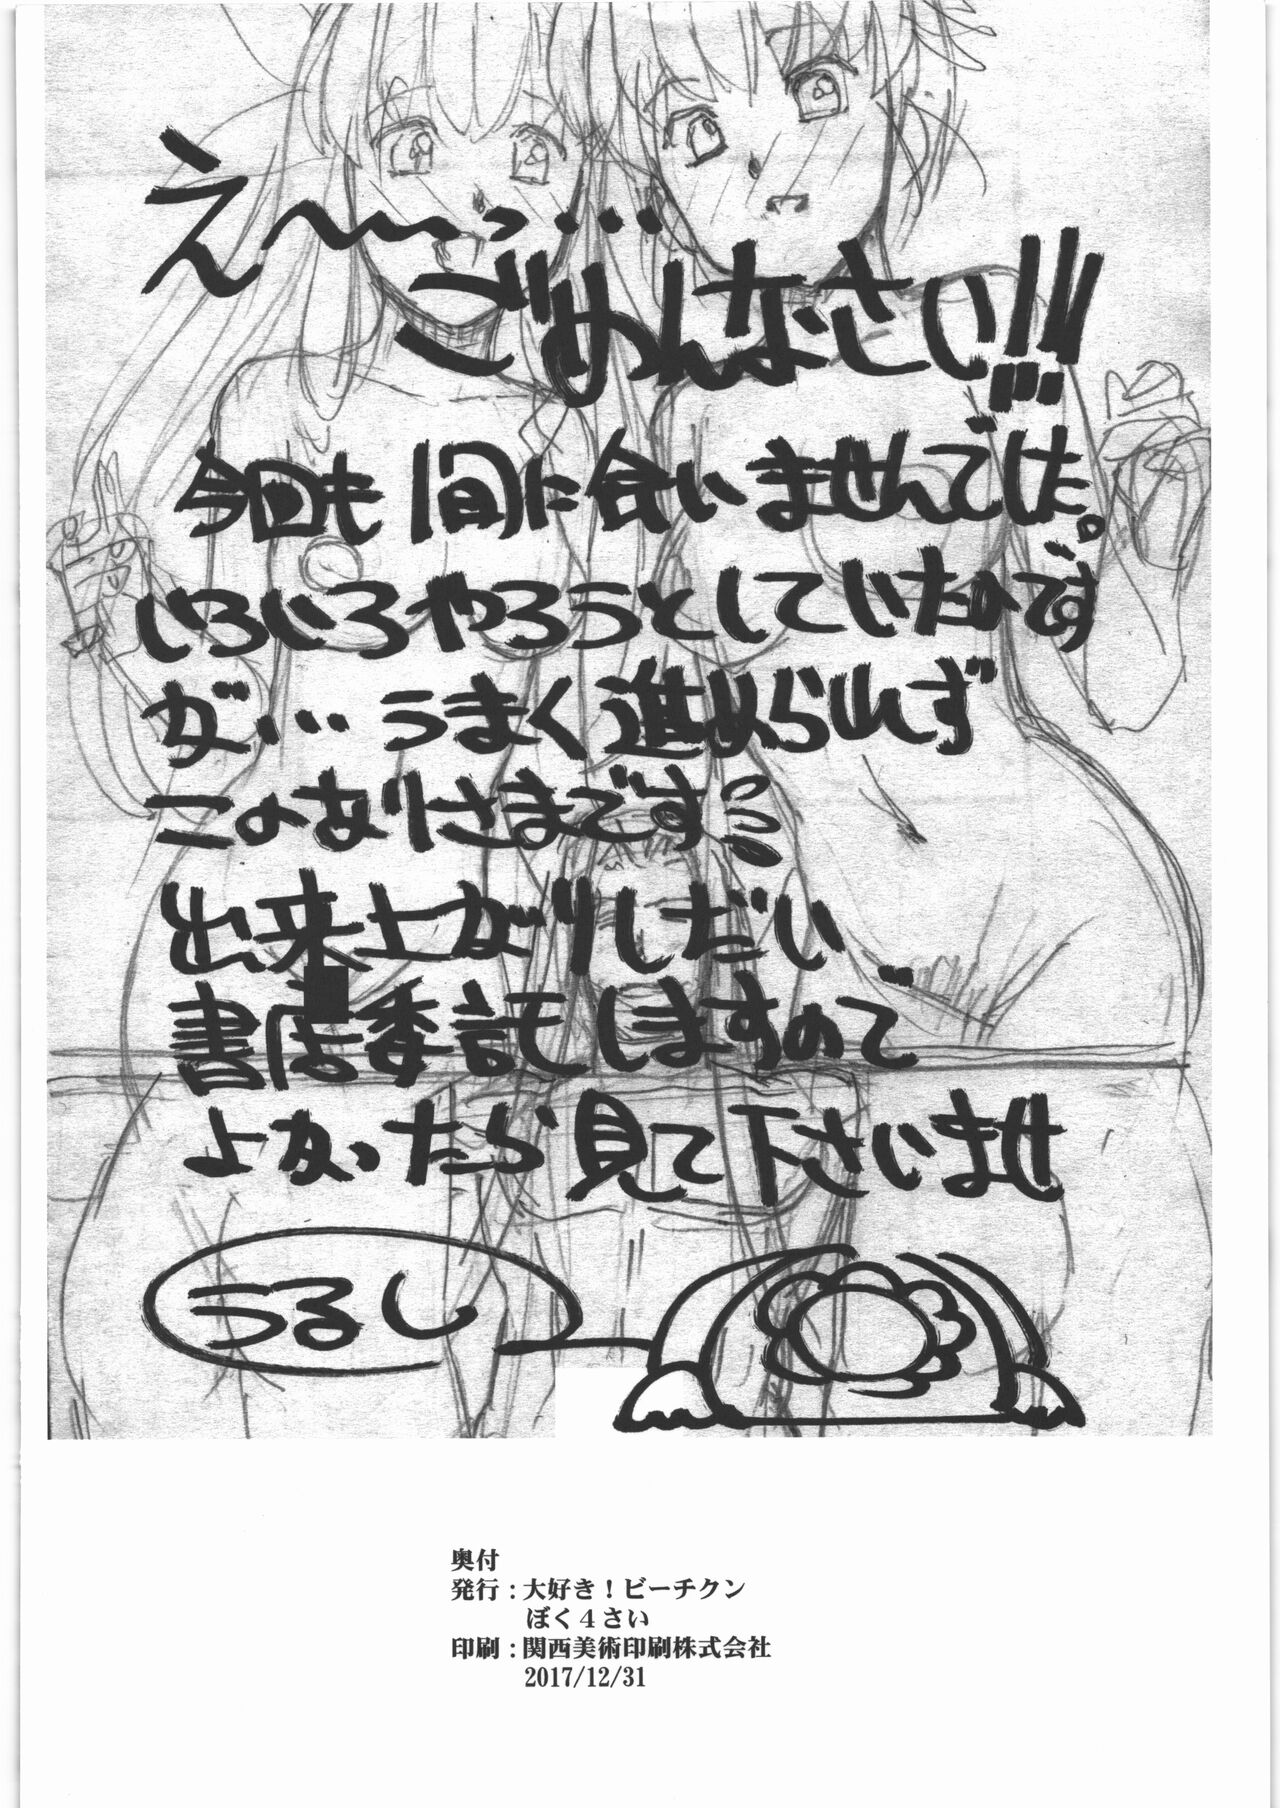 え〜〜っ・・・・
ごめんなさい!!!
今回も間に合いませんでした。
いろいろやろうとしていたのです
が… うまく進められず
このありさまです
出来上がりしだい
書店委託しますので
よかったら見て下さいませ
うるし
奥付
発行：大好き！ビーチクン
ぼく４さい
印刷：関西美術印刷株式会社
2017/12/31